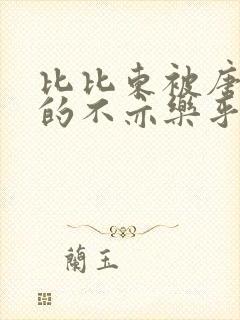 比比東被唐
的不亦樂乎
蘭玉